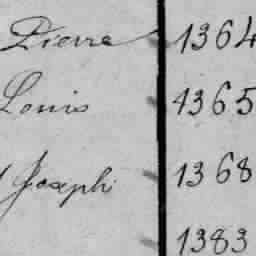 Pierre 1364
Louis 1365
Joseph 1368
1383